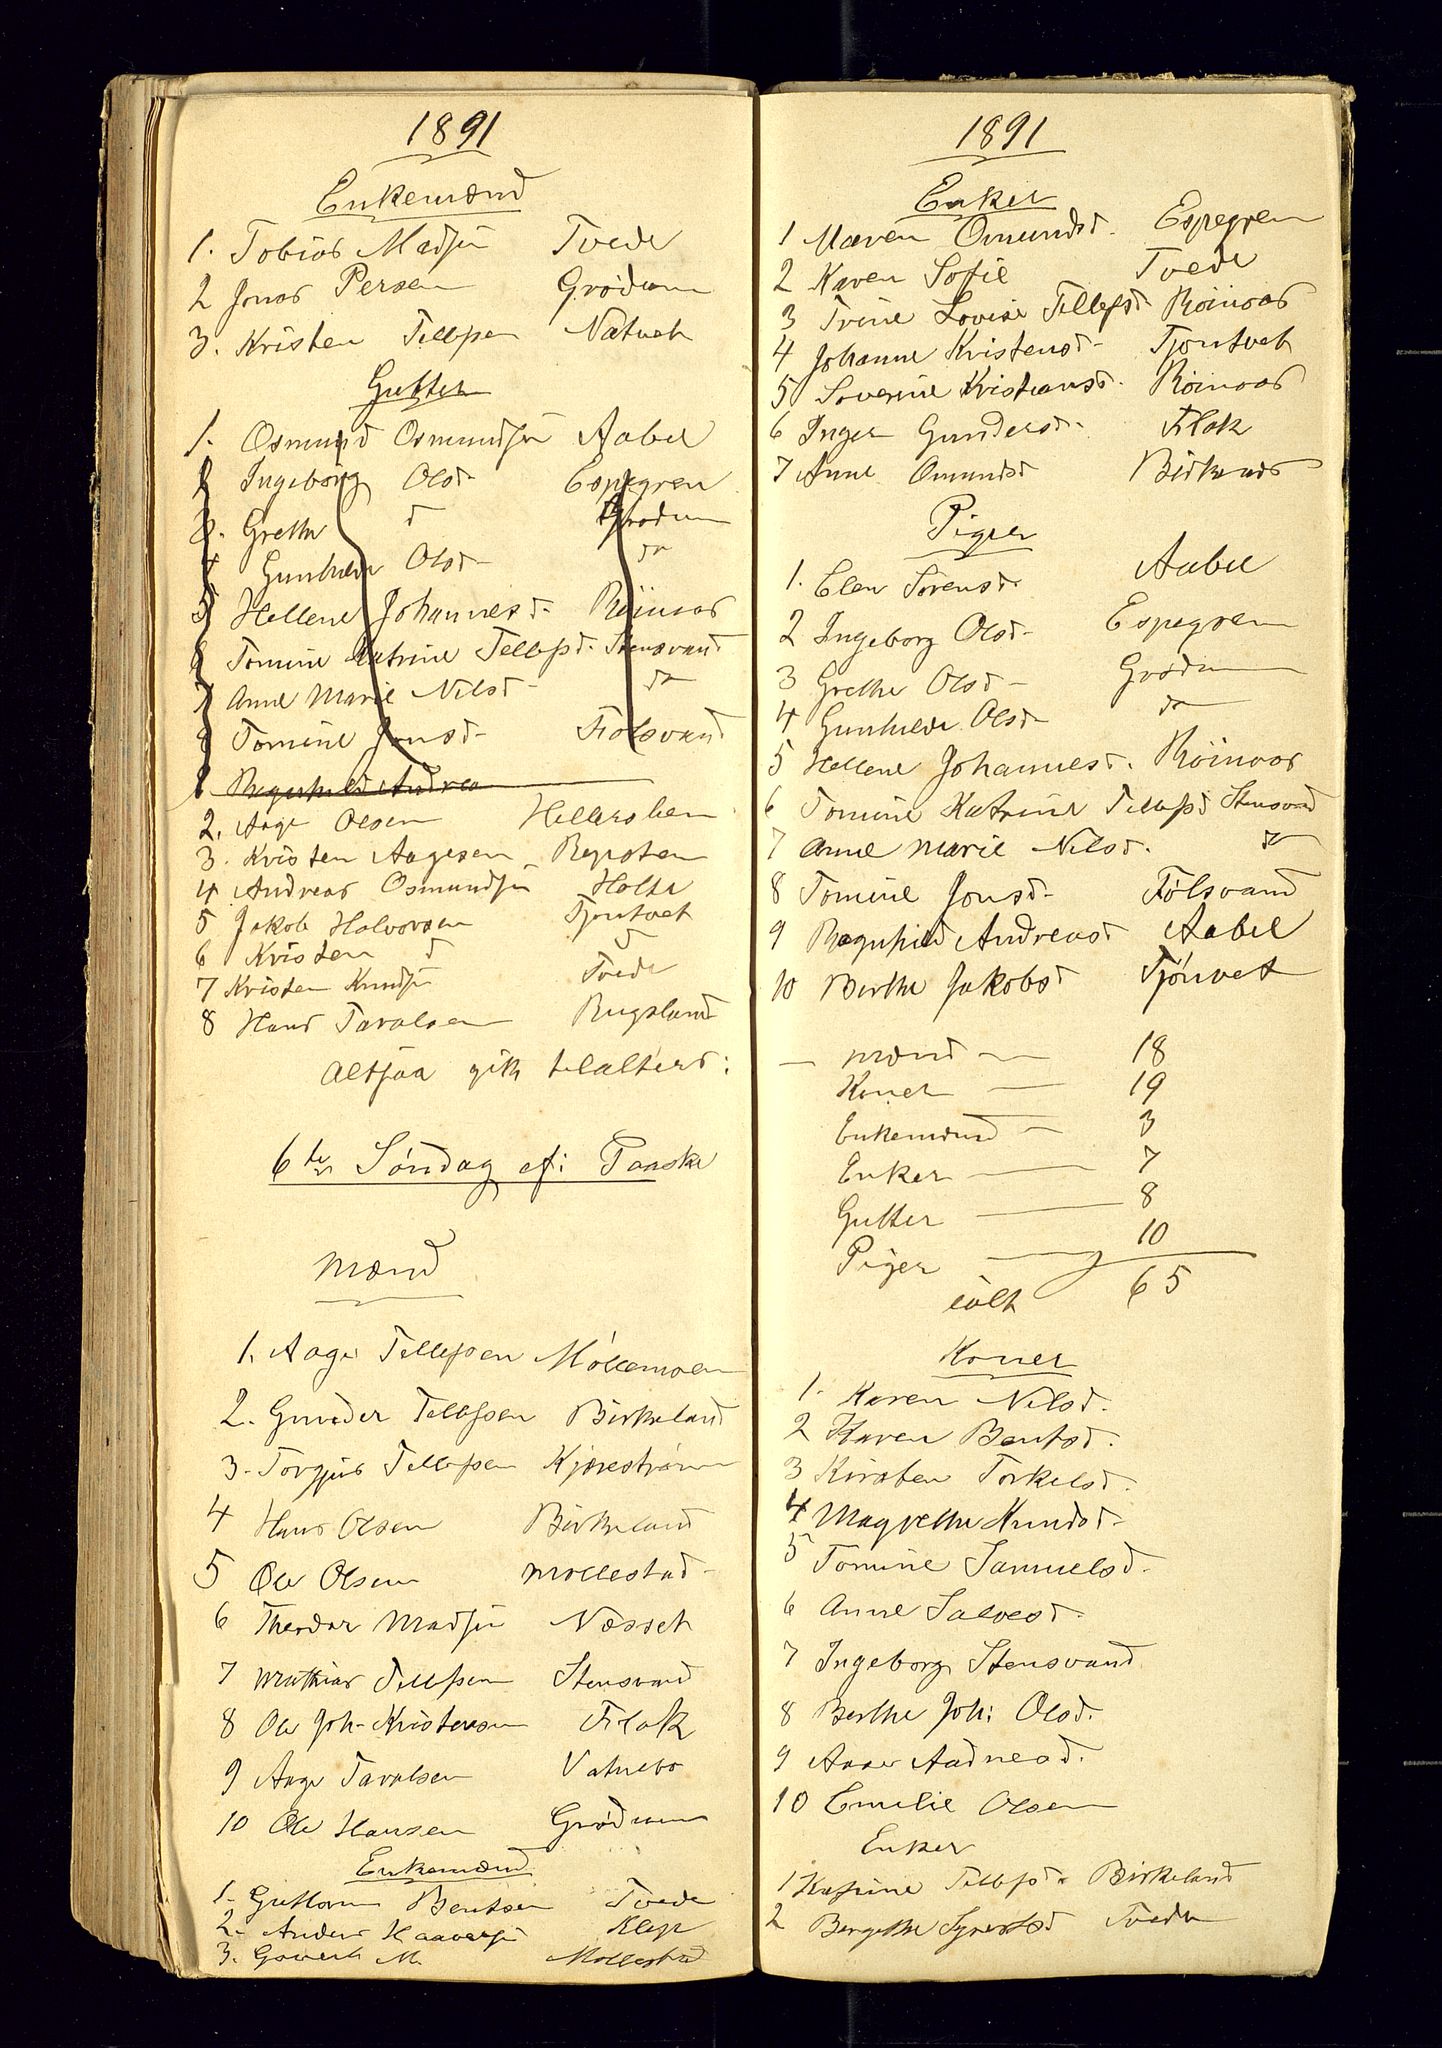 1891
Enkemænd
1. Tobias Madsen Tvede
2 Jonas Persen Grødum
3. Kristen Tellefsen Natvet
Gutter
1. Osmund Osmundsen Aabel
2 Ingeborg Olsd. Espegren
3. Grethe d Grødum
4 Gunhilde Olsd. do
5 Hellene Johannesd. Röinaas
6 Tomine Katrine Tellefsd. Stensvand
7 Anne Marie Nilsd. do
8 Tomine Jonsd. Følsvand
Ragnhild Andrea
2. Aage Olsen Hellersheu
3. Kristen Aagesen Repsten
4 Andreas Osmundsen Holte
5 Jakob Halvorsen Tjøntvet
6 Kristen d d
7 Kristen Knudsen Tvede
8 Hans Taralsen Rugsland
altsaa gik tilalters:
6te Søndag ef: Paaske
Mænd
1. Aage Tellefsen Møllemoen
2. Gunder Tellefsen Birkeland
3. Torgjus Tellefsen Kjærestrøm
4 Hans Olsen Birkeland
5 Ole Olsen Mollestad
6 Theodor Madsen Næsset
7 Mathias Tellefsen Stensvand
8 Ole Joh. Kristensen Flak
9 Aage Taralsen Vatnebo
10 Ole Hansen Grødum
Enkemænd
1. Guttorm Bentsen Tvede
2. Anders Haaversen Klep
3. M. Mollestad
1891
Enker
1 Maren Omundsd. Espegren
2 Karen Sofie Tvede
3 Trine Lovise Tellefsd. Röinaas
4 Johanne Kristensd. Tjøntvet
5 Severine Kristiansd. Röinaas
6 Inger Gundersd. Flak
7 Anne Omundsd
Piger
1. Elen Sørensd. Aabel
2 Ingeborg Olsd. Espegren
3 Grethe Olsd. Grødum
4 Gunhilde Olsd. do
5 Hellene Johannesd. Röinaas
6 Tomine Katrine Tellefsd Stensvand
7 Anne Marie Nilsd. do
8 Tomine Jonsd. Følsvand
9 Ragnhild Andreasd Aabel
10 Berthe Jakobsd Tjönvet
Mænd 18
Koner 19
Enkemænd 3
Enker 7
Gutter 8
Piger 10
ialt 65
Koner
1. Karen Nilsd.
2 Karen Bentsd.
3 Kirsten Torkelsd.
4 Magrethe Knudsd.
5 Tomine Samuelsd.
6 Anne Salvesd.
7 Ingeborg Stensvand
8 Berthe Joh: Olsd.
9 Aase Aadnesd.
10 Emilie Olsen
Enker
1 Katrine Tellefsd. Birkeland
2 Bergithe Syvertsd Tvede